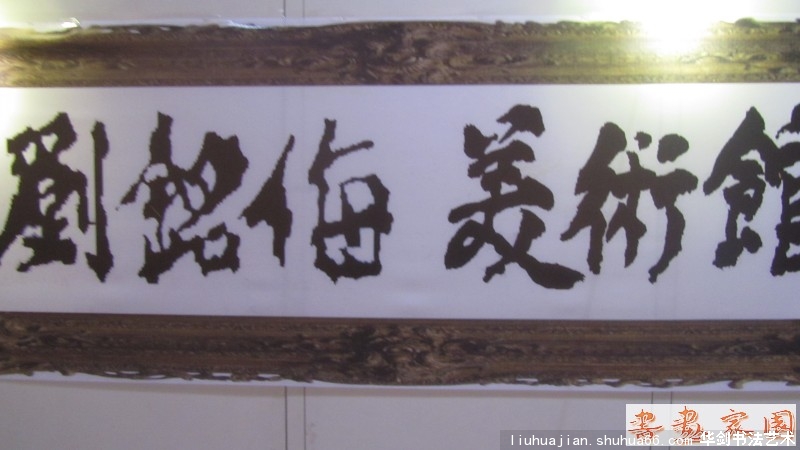 劉銘侮 美術館
書畫家園
liuhuajian.shuhua66.com 华剑书法艺术